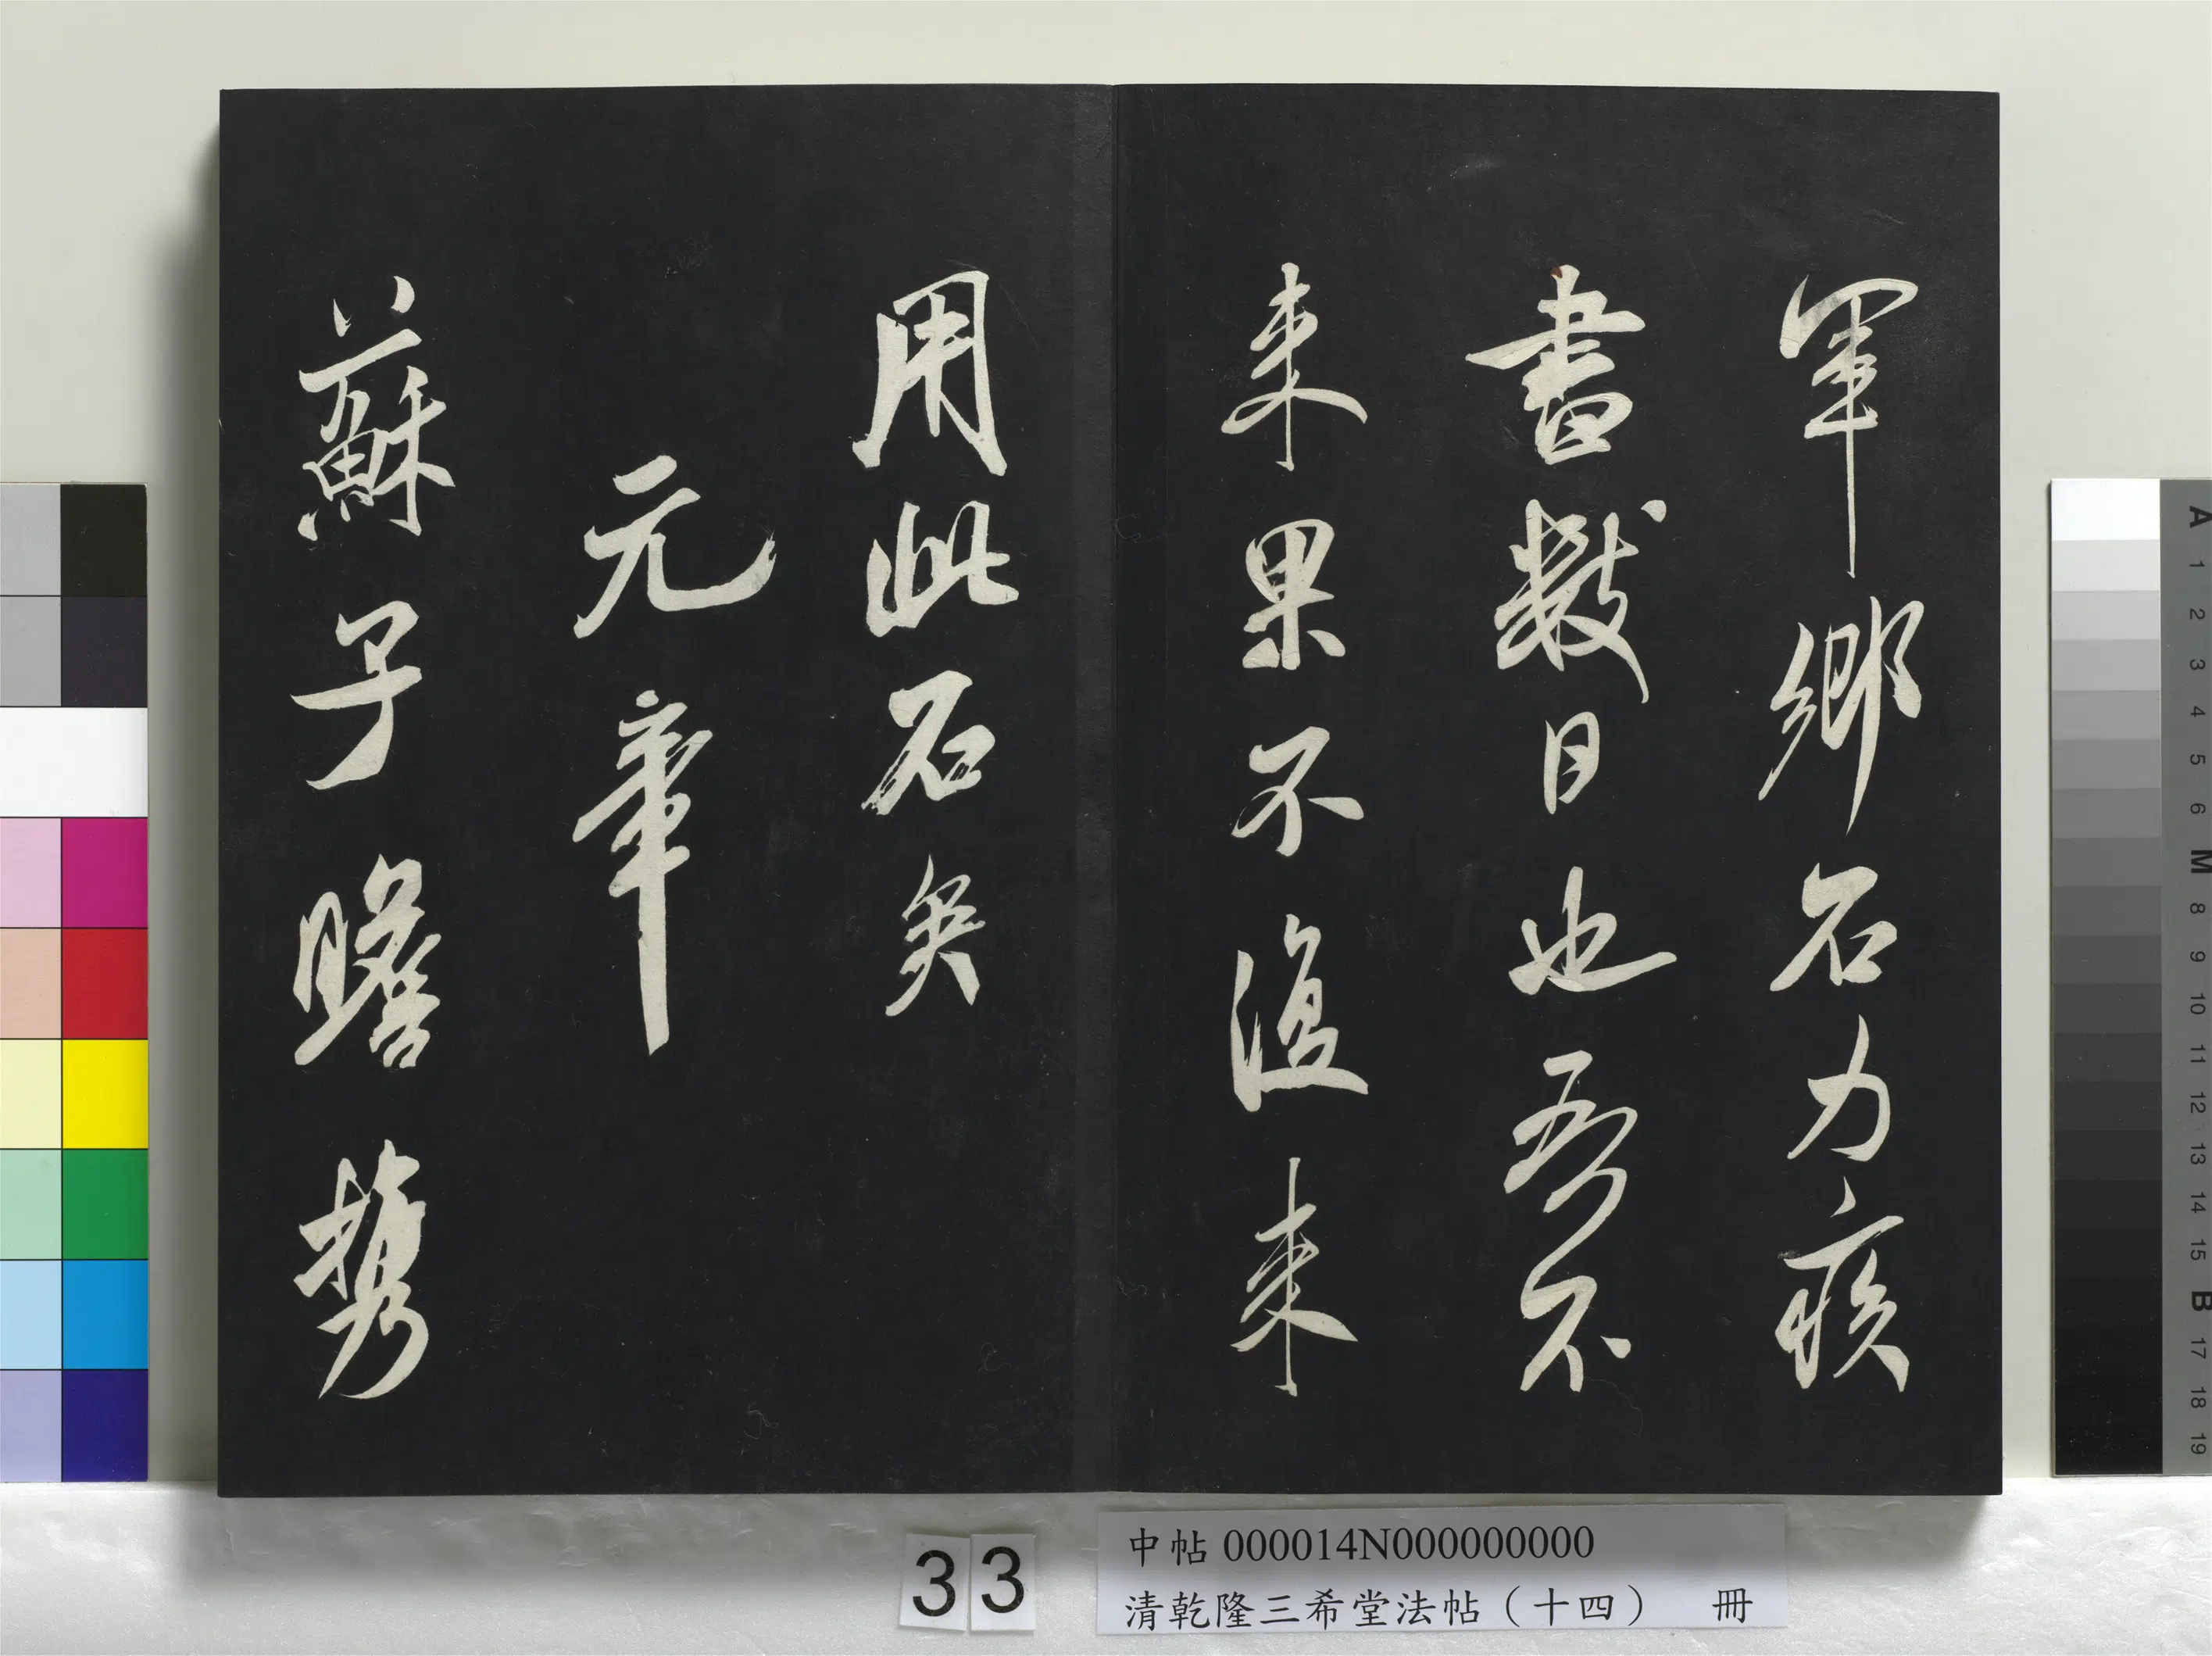 軍鄉石力疾
書數日也吾不
来果不復来
用此石矣
元章
蘇子瞻携
33
中帖 000014N000000000
清乾隆三希堂法帖（十四） 冊
A 1 2 3 4 5 6 M 8 9 10 11 12 13 14 15 B 17 18 19